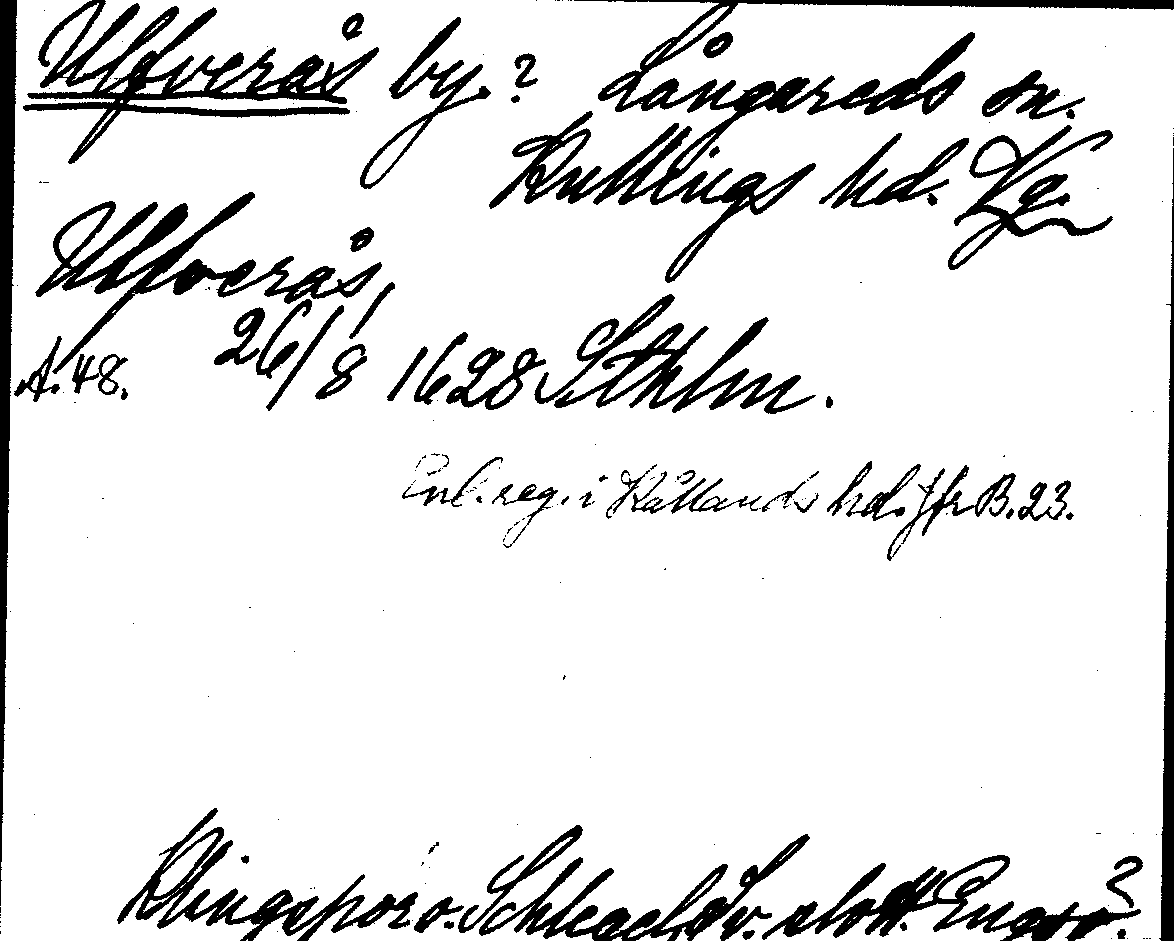 Ulfverås by.? Långareds sn.
Kullings hd. Vg.
Ulfverås,
A.48. 26/8 1628 Sthlm.
Enl. reg. i Kållands hd. Jfr B.23.
Klingspor o. Schlegel, Sv. slott. Engsö?